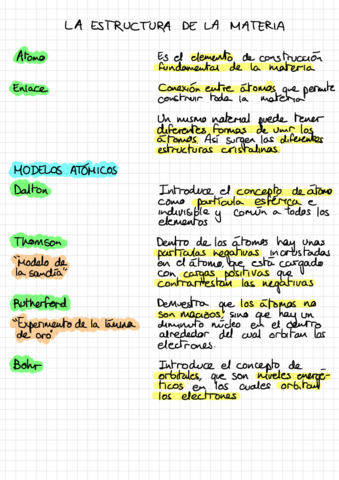 LA ESTRUCTURA DE LA MATERIA
Átomo
Es el elemento de construcción
fundamental de la materia
Enlace
Conexión entre átomos que permite
construir toda la materia
Un mismo material puede tener
diferentes formas de unir los
átomos. Así surgen las diferentes
estructuras cristalinas.
MODELOS ATÓMICOS
Dalton
Introduce el concepto de átomo
como partícula esférica e
indivisible y común a todos los
elementos
Thomson
"Modelo de
la sandía"
Dentro de los átomos hay unas
partículas negativas incrustadas
en el átomo, que está cargado
con cargas positivas que
contrarrestan las negativas
Rutherford
"Experimento de la lámina
de oro"
Demuestra que los átomos no
son macizos, sino que hay un
diminuto núcleo en el centro
alrededor del cual orbitan los
electrones.
Bohr
Introduce el concepto de
orbitales, que son niveles energé-
ticos en los cuales orbitan
los electrones